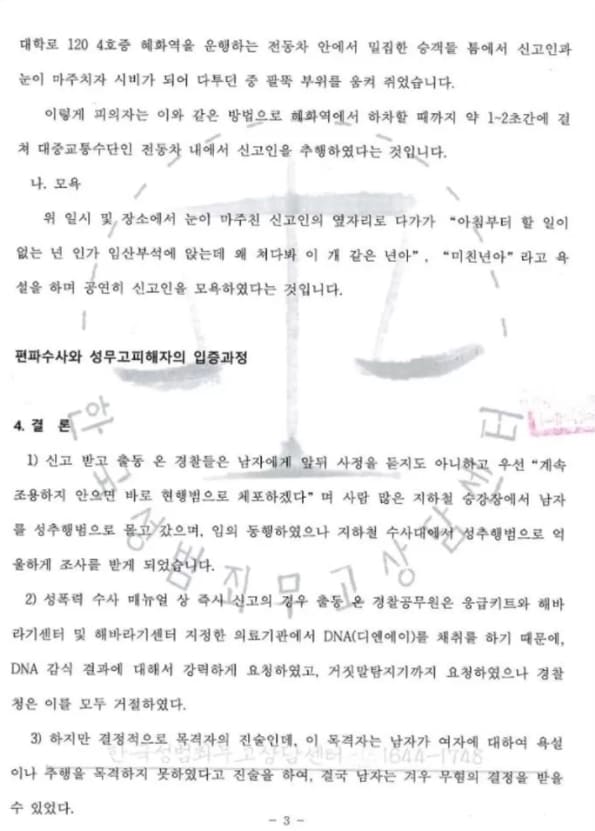 대학로 120 4호증 혜화역을 운행하는 전동차 안에서 밀집한 승객들 틈에서 신고인과
눈이 마주치자 시비가 되어 다투던 중 팔뚝 부위를 움켜 쥐었습니다.
이렇게 피의자는 이와 같은 방법으로 혜화역에서 하차할 때까지 약 1~2초간에 걸
쳐 대중교통수단인 전동차 내에서 신고인을 추행하였다는 것입니다.
나. 모욕
위 일시 및 장소에서 눈이 마주친 신고인의 옆자리로 다가가 “아침부터 할 일이
없는 년 인가 임산부석에 앉는데 왜 쳐다봐 이 개 같은 년아”, “미친년아”라고 욕
설을 하며 공연히 신고인을 모욕하였다는 것입니다.
편파수사와 성무고피해자의 입증과정
4. 결 론
1) 신고 받고 출동 온 경찰들은 남자에게 앞뒤 사정을 듣지도 아니하고 우선 “계속
조용하지 안으면 바로 현행범으로 체포하겠다” 며 사람 많은 지하철 승강장에서 남자
를 성추행범으로 몰고 갔으며, 임의 동행하였으나 지하철 수사대에서 성추행범으로 억
울하게 조사를 받게 되었습니다.
2) 성폭력 수사 매뉴얼 상 즉시 신고의 경우 출동 온 경찰공무원은 응급키트와 해바
라기센터 및 해바라기센터 지정한 의료기관에서 DNA(디엔에이)를 채취를 하기 때문에,
DNA 감식 결과에 대해서 강력하게 요청하였고, 거짓말탐지기까지 요청하였으나 경찰
청은 이를 모두 거절하였다.
3) 하지만 결정적으로 목격자의 진술인데, 이 목격자는 남자가 여자에 대하여 욕설
한국성범죄무고상담센터 1644-1748
이나 추행을 목격하지 못하였다고 진술을 하여, 결국 남자는 겨우 무혐의 결정을 받을
수 있었다.
- 3 -
성범죄무고상담센터